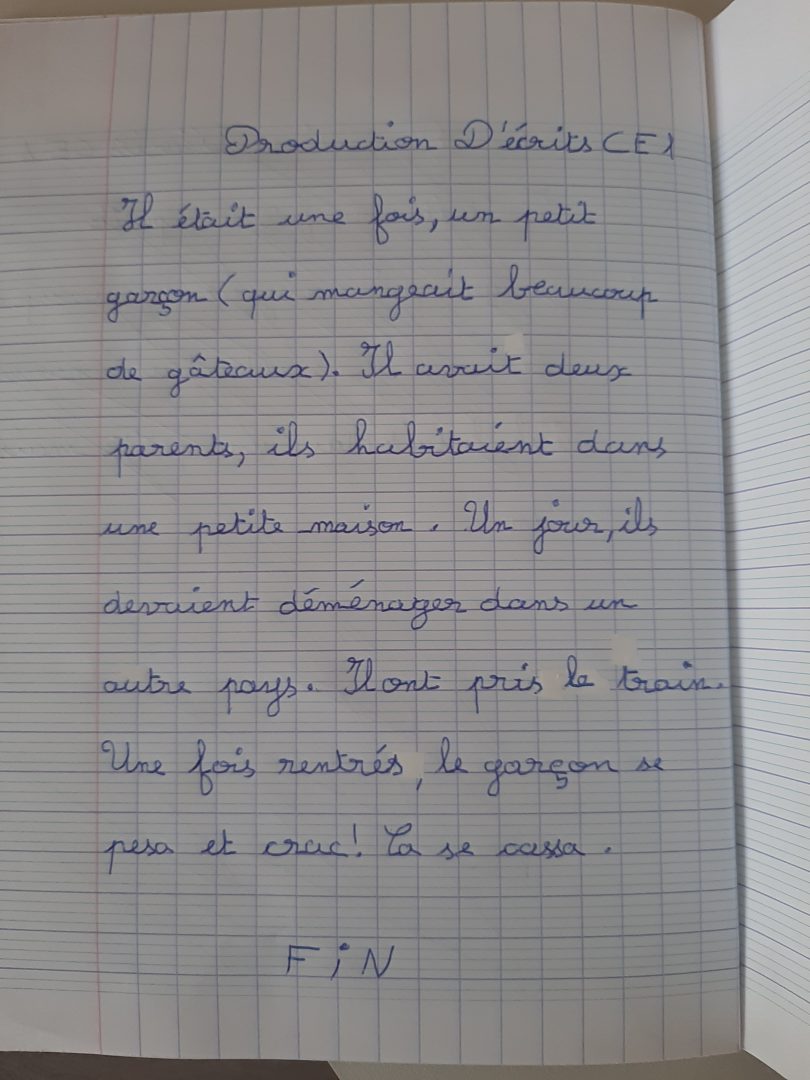 Production D'écrits CE1
Il était une fois, un petit
garçon (qui mangeait beaucoup
de gâteaux). Il avait deux
parents, ils habitaient dans
une petite maison. Un jour, ils
devaient déménager dans un
autre pays. Il ont pris le train.
Une fois rentrés, le garçon se
pesa et crac! Ca se cassa.
FiN